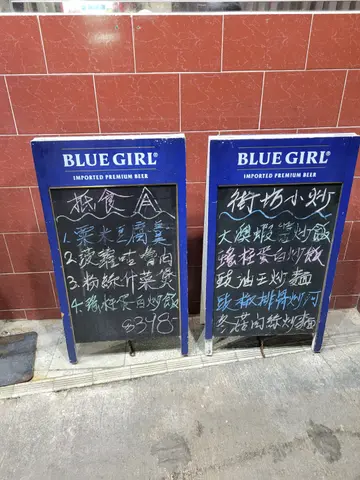 BLUE GIRL®
IMPORTED PREMIUM BEER
抵食
1. 粟米豆腐羹
2. 菠蘿咕嚕肉
3. 粉絲什菜煲
4. 瑤柱蛋白炒飯
8348-
BLUE GIRL®
IMPORTED PREMIUM BEER
街坊小炒
大澳蝦醬炒飯
瑤柱蛋白炒飯
豉油王炒麵
豉椒排骨炒河
冬菇肉絲炒麵